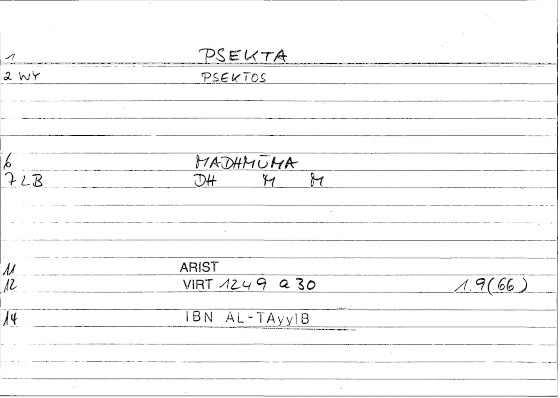 1 PSEKTA
2 WY PSEKTOS
6 MADHMŪMA
7 LB DH M M
11 ARIST
12 VIRT 1249 a 30 1.9(66)
14 IBN AL-TAyyIB